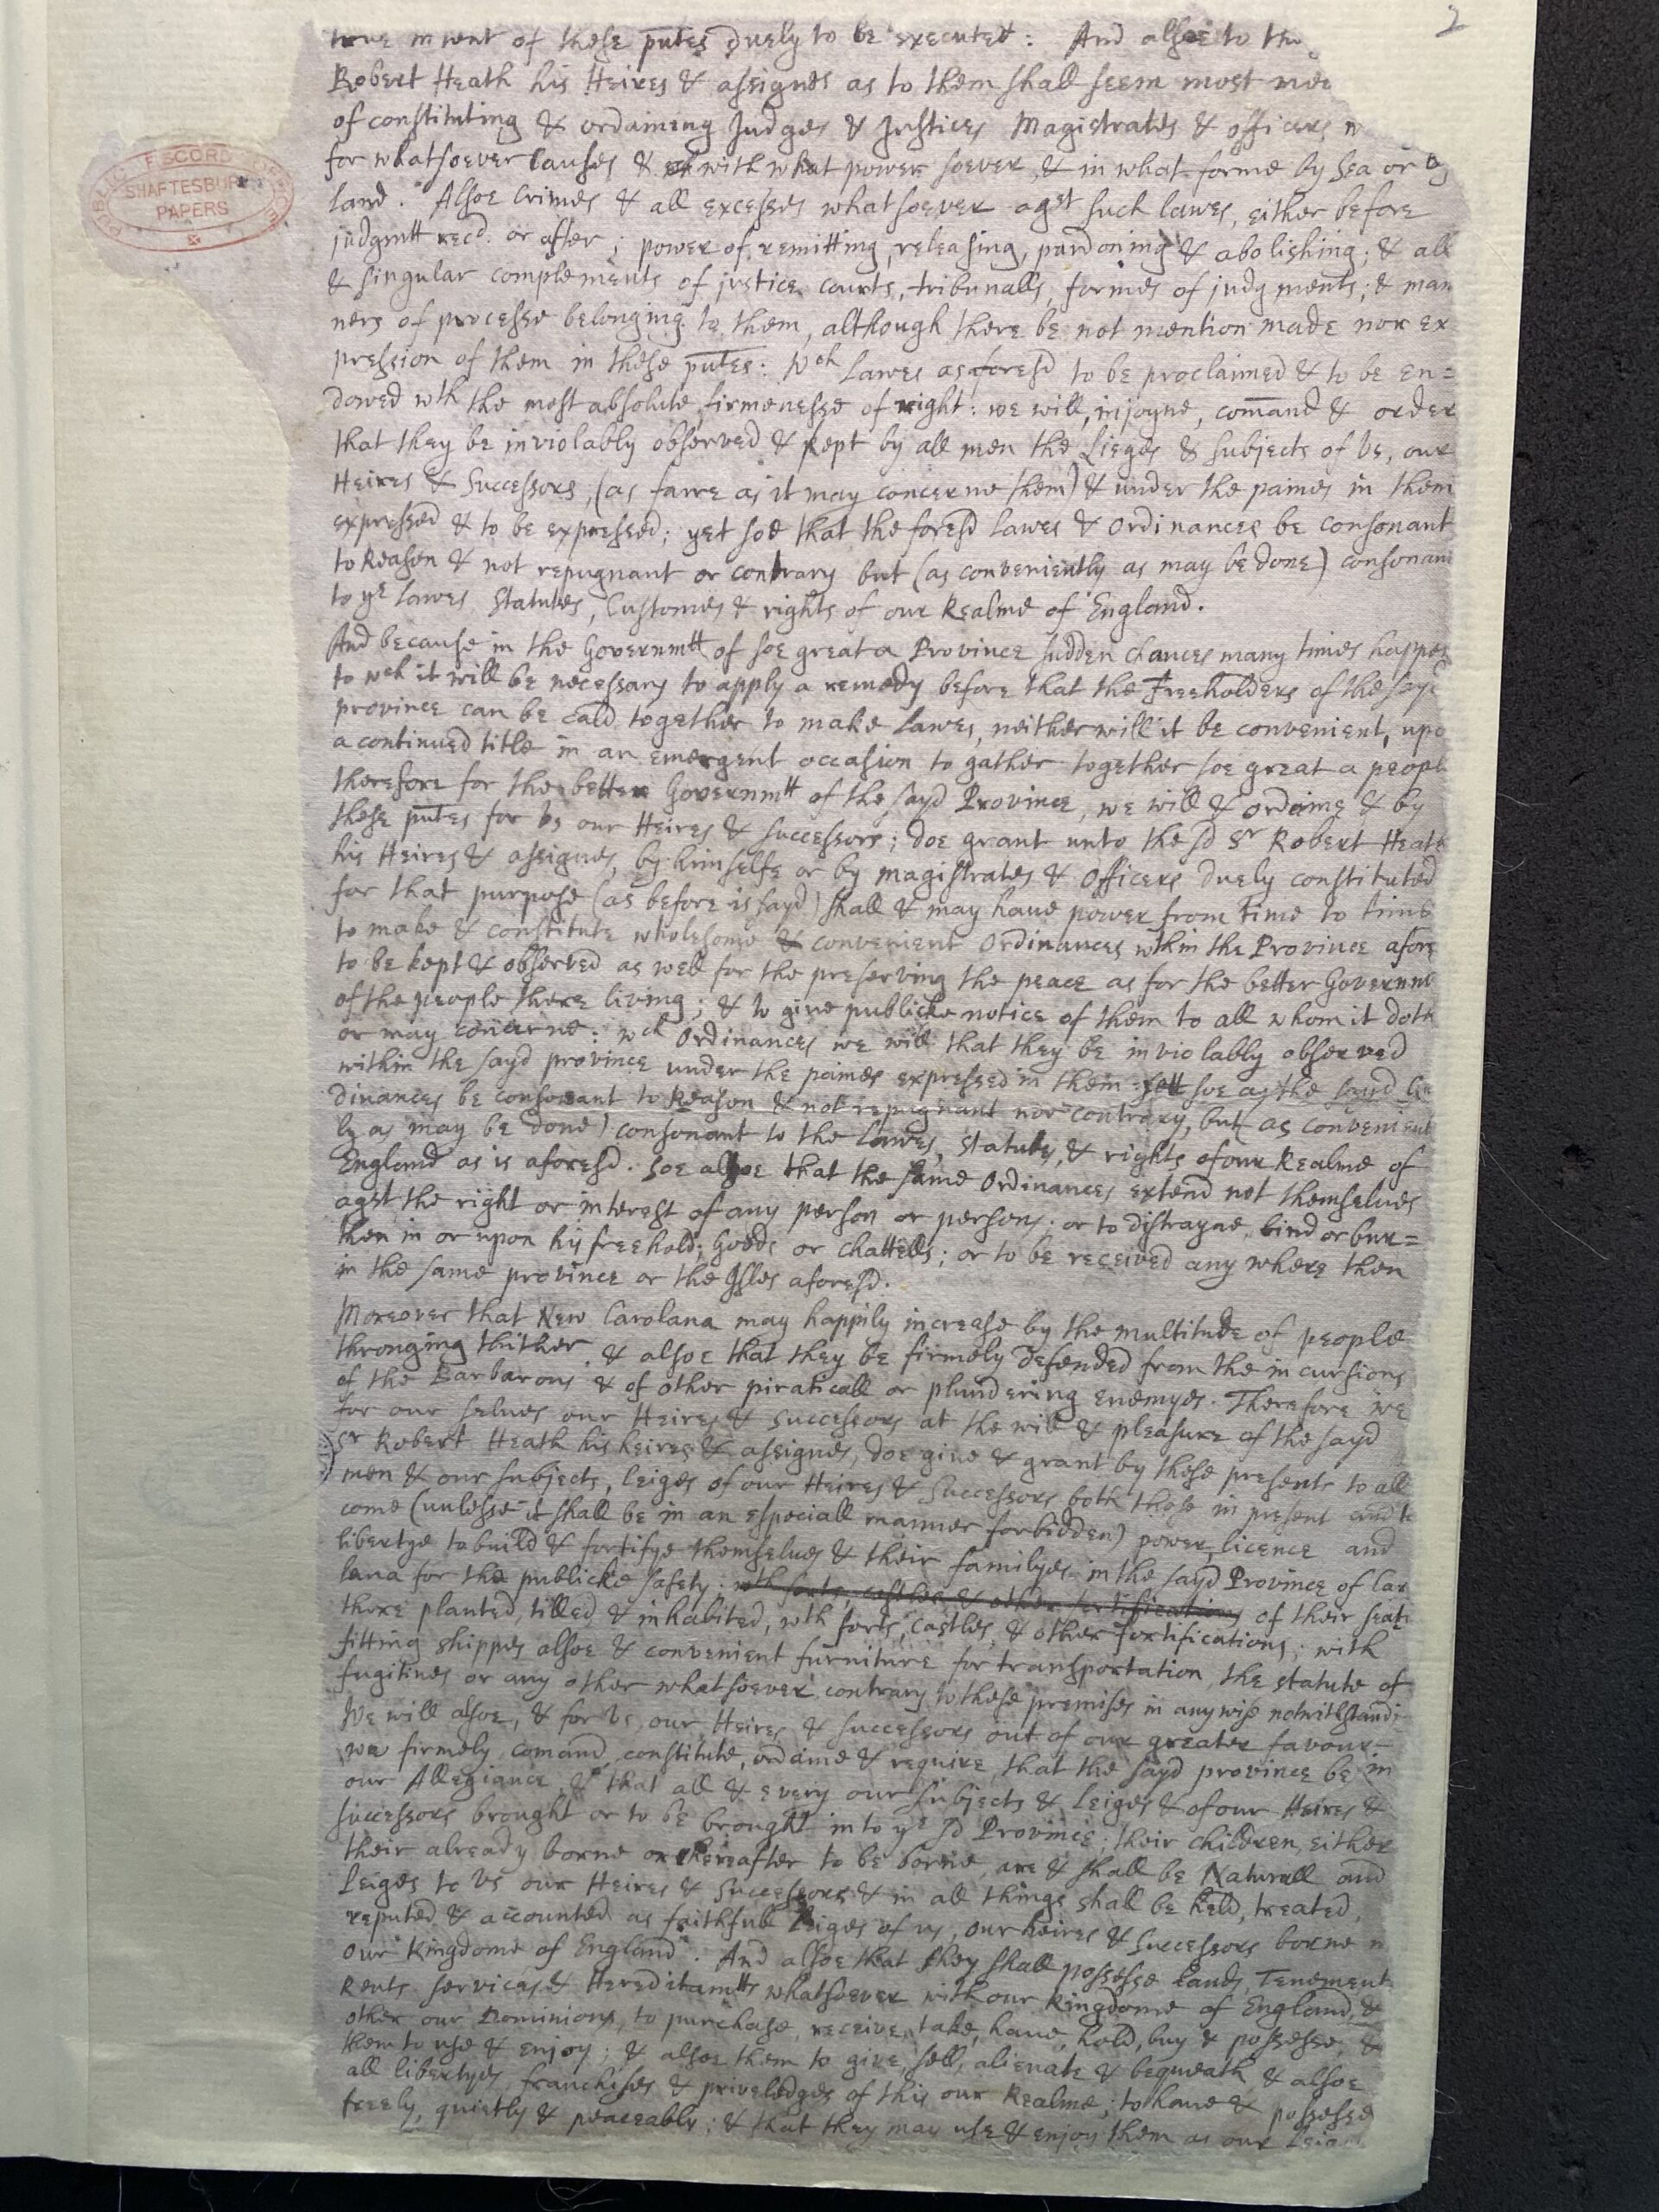 2
PUBLIC RECORD OFFICE
SHAFTESBURY
PAPERS
intent of these p̄ntes duely to be executed: And alsoe to
Robert Heath his Heires & assignes as to them shall seem most
of constituting & ordaineing Judges & Justices Magistrates & officers
for whatsoever causes & with what power soever & in what forme by Sea or
land. Alsoe Crimes & all excesses whatsoever agst such lawes, either before
judgmtt recd. or after; power of remitting, releasing, pardoning & abolishing; & all
& singular complements of justice courts, tribunalls, formes of judgments; & man
ners of processe belonging to them, although there be not mention made nor ex
pression of them in these p̄ntes: Wch Lawes as aforesd to be proclaimed & to be en=
dowed wth the most absolute firmenesse of right: we will, injoyne, com̄and & order
that they be inviolably observed & kept by all men the Lieges & subjects of Vs, our
Heires & Successors, (as farre as it may concerne them) & under the paines in them
expressed & to be expressed; yet soe that the foresd Lawes & Ordinances be consonant
to Reason & not repugnant or contrary but (as conveniently as may be done) consonan
to ye Lawes, Statutes, Customes & rights of our Realme of England.
And because in the Governmtt of soe great a Province sudden chances many times happen
to wch it will be necessary to apply a remedy before that the Freeholders of the sayd
province can be cald together to make Lawes, neither will it be convenient, upo
a continued title in an emergent occasion to gather together soe great a people
therefore for the better Governmtt of the sayd Province, we will & ordaine & by
these p̄ntes for vs our Heires & successors; doe grant unto the sd Sr Robert Heath
his Heires & assignes, by himselfe or by magistrates & Officers duely constituted
for that purpose (as before is sayd) shall & may have power from time to time
to make & constitute wholesome & convenient Ordinances wthin the Province afore
to be kept & observed as well for the preserving the peace as for the better Governm
of the people there living; & to give publicke notice of them to all whom it doth
or may concerne: wch Ordinances we will that they be inviolably observed
within the sayd province under the paines expressed in them soe as the sayd
dinances be consonant to Reason & not repugnant nor contrary, but (as convenient
ly as may be done) consonant to the Lawes, statutes, & rights of our Realme of
England as is aforesd. Soe alsoe that the same Ordinances extend not themselves
agst the right or interest of any person or persons: or to distrayne, bind or bur=
then in or upon his freehold, Goods or chattells; or to be received any where then
in the same province or the Isles aforesd.
Moreover that New Carolana may happily increase by the multitude of people
thronging thither & alsoe that they be firmely defended from the incursions
of the Barbarous & of other piraticall or plundering enemyes. Therefore we
for our selves our Heires & successors at the will & pleasure of the sayd
Sr Robert Heath his heires & assignes, doe give & grant by these presents to all
men & our subjects, leiges of our Heires & Successors both those in present and to
come (unlesse it shall be in an especiall manner forbidden) power, licence and
libertye to build & fortifye themselves & their familyes in the sayd Province of Car
lana for the publicke safety: wth forts, castles & other fortifications of their seate
there planted, tilled, & inhabited, wth forts, castles, & other fortifications; with
fitting shippes alsoe & convenient furniture for transportation, the statute of
fugitives or any other whatsoever contrary to these premises in any wise notwithstandi
We will alsoe, & for Vs, our Heires & successors out of our greater favour
we firmely comand, constitute, ordaine & require, that the sayd province be in
our Allegiance & that all & every our subjects & leiges & of our Heires &
successors brought or to be brought in to ye sd Province; their children, either
their already borne or hereafter to be borne, are & shall be Naturall and
Leiges to Vs our Heires & Successors & in all things shall be held, treated,
reputed & accounted as faithfull Leiges of us, our heires & Successors borne
our Kingdome of England. And alsoe that they shall possesse Lands, Tenement
Rents services & Hereditamtts whatsoever with our Kingdome of England, &
other our Dominions, to purchase, receive, take, have, hold, buy & possesse, &
them to use & enjoy; & alsoe them to give, sell, alienate & bequeath & alsoe
all libertyes, franchises & priveledges of this our Realme; to have & possesse
freely, quietly & peaceably; & that they may use & enjoy them as our